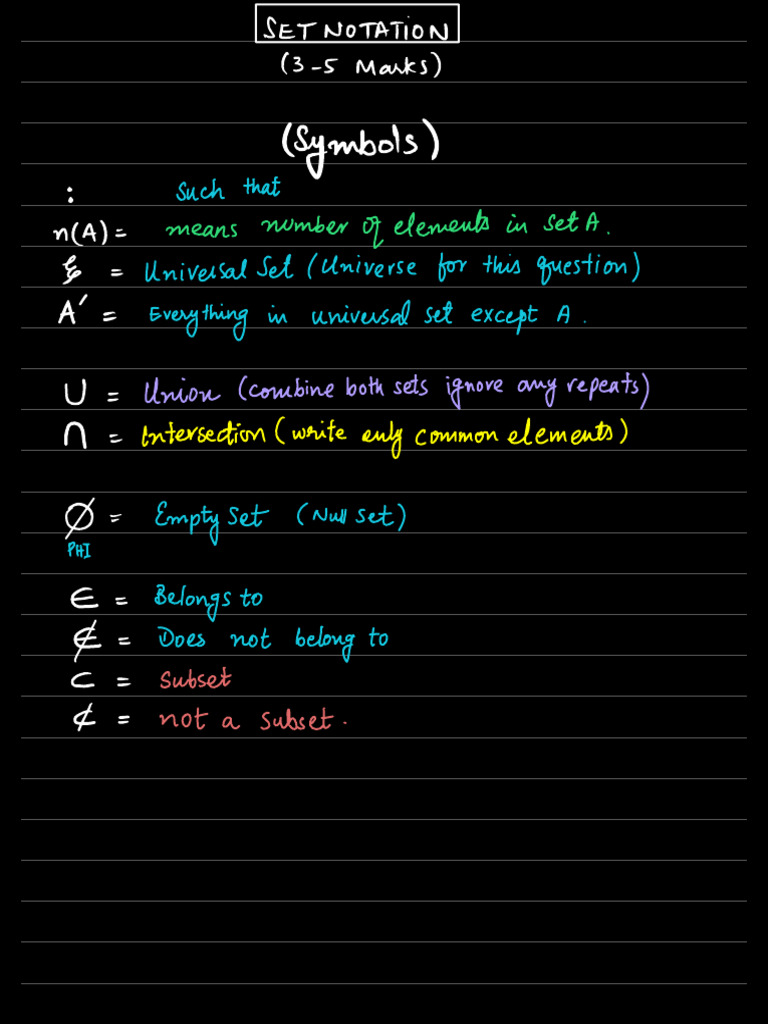 SET NOTATION
(3-5 Marks)
(Symbols)
: Such that
n(A) = means number of elements in set A.
ξ = Universal Set (Universe for this question)
A′ = Everything in universal set except A.
∪ = Union (combine both sets ignore any repeats)
∩ = Intersection (write only common elements)
∅ = Empty Set (Null set)
PHI
∈ = Belongs to
∉ = Does not belong to
⊂ = Subset
⊄ = not a subset.